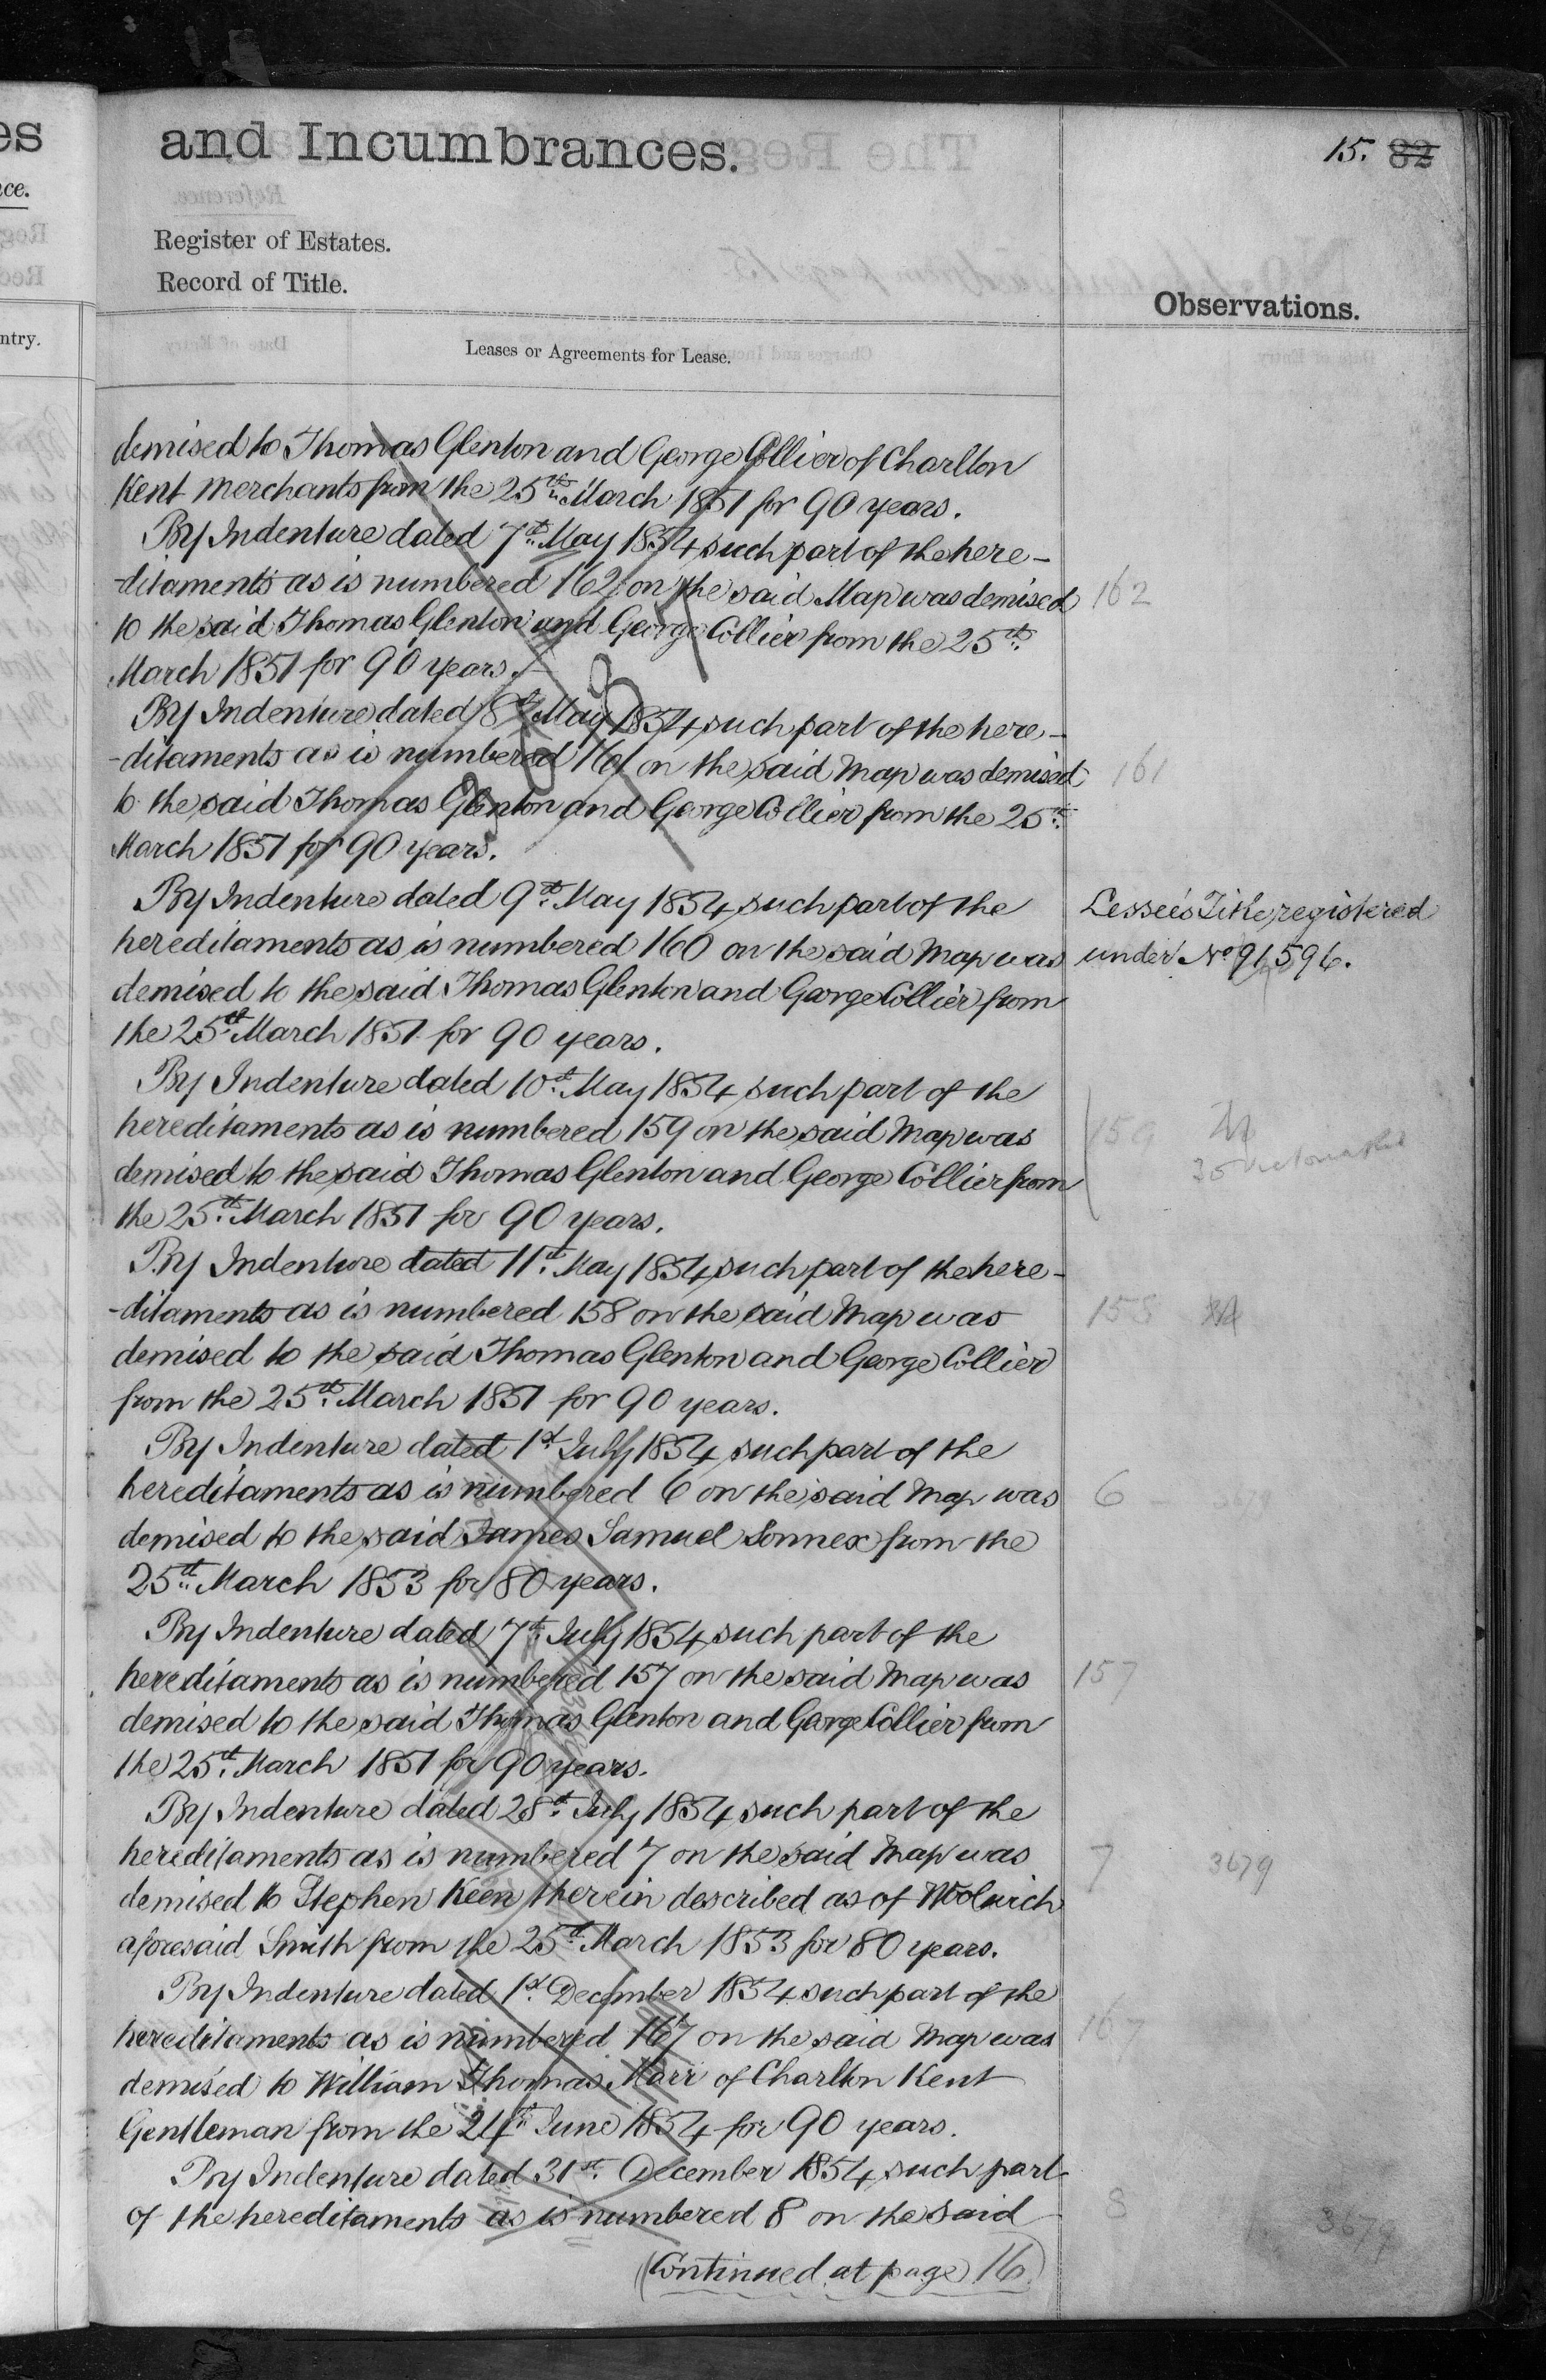 es
and Incumbrances.
15. 82
nce.
Register of Estates.
Record of Title.
Observations.
ntry.
Leases or Agreements for Lease.
demised to Thomas Glenton and George Collier of Charlton
Kent Merchants from the 25th March 1851 for 90 years.
By Indenture dated 7th May 1854 such part of the here-
-ditaments as is numbered 162 on the said Map was demised
162
to the said Thomas Glenton and George Collier from the 25th
March 1851 for 90 years.
By Indenture dated 8th May 1854 such part of the here-
-ditaments as is numbered 161 on the said Map was demised
161
to the said Thomas Glenton and George Collier from the 25th
March 1851 for 90 years.
By Indenture dated 9th May 1854 such part of the
Lessee's Title registered
hereditaments as is numbered 160 on the said Map was
under No 91596.
demised to the said Thomas Glenton and George Collier from
the 25th March 1851 for 90 years.
By Indenture dated 10th May 1854 such part of the
hereditaments as is numbered 159 on the said Map was
159
demised to the said Thomas Glenton and George Collier from
the 25th March 1851 for 90 years.
By Indenture dated 11th May 1854 such part of the here-
-ditaments as is numbered 158 on the said Map was
158
demised to the said Thomas Glenton and George Collier
from the 25th March 1851 for 90 years.
By Indenture dated 1st July 1854 such part of the
hereditaments as is numbered 6 on the said Map was
6
demised to the said James Samuel Sonnex from the
25th March 1853 for 80 years.
By Indenture dated 7th July 1854 such part of the
hereditaments as is numbered 157 on the said Map was
157
demised to the said Thomas Glenton and George Collier from
the 25th March 1851 for 90 years.
By Indenture dated 28th July 1854 such part of the
hereditaments as is numbered 7 on the said Map was
7 3679
demised to Stephen Keen therein described as of Woolwich
aforesaid Smith from the 25th March 1853 for 80 years.
By Indenture dated 1st December 1854 such part of the
hereditaments as is numbered 167 on the said Map was
167
demised to William Thomas Marr of Charlton Kent
Gentleman from the 24th June 1854 for 90 years.
By Indenture dated 31st December 1854 such part
of the hereditaments as is numbered 8 on the said
8 3679
(Continued at page 16)